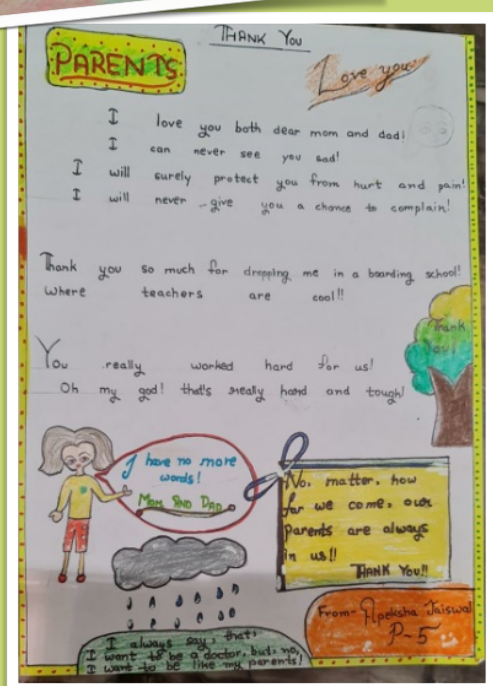 THANK YOU
PARENTS
Love you
I love you both dear mom and dad!
I can never see you sad!
I will surely protect you from hurt and pain!
I will never give you a chance to complain!
Thank you so much for dropping me in a boarding school!
Where teachers are cool!!
You really worked hard for us!
Oh my god! that's really hard and tough!
Thank
You!
I have no more
words!
MOM AND DAD
No, matter, how
far we come, our
parents are always
in us!!
THANK YOU!!
From- Apeksha Jaiswal
P-5
I always say, that,
I want to be a doctor, but, no,
I want to be like my parents!